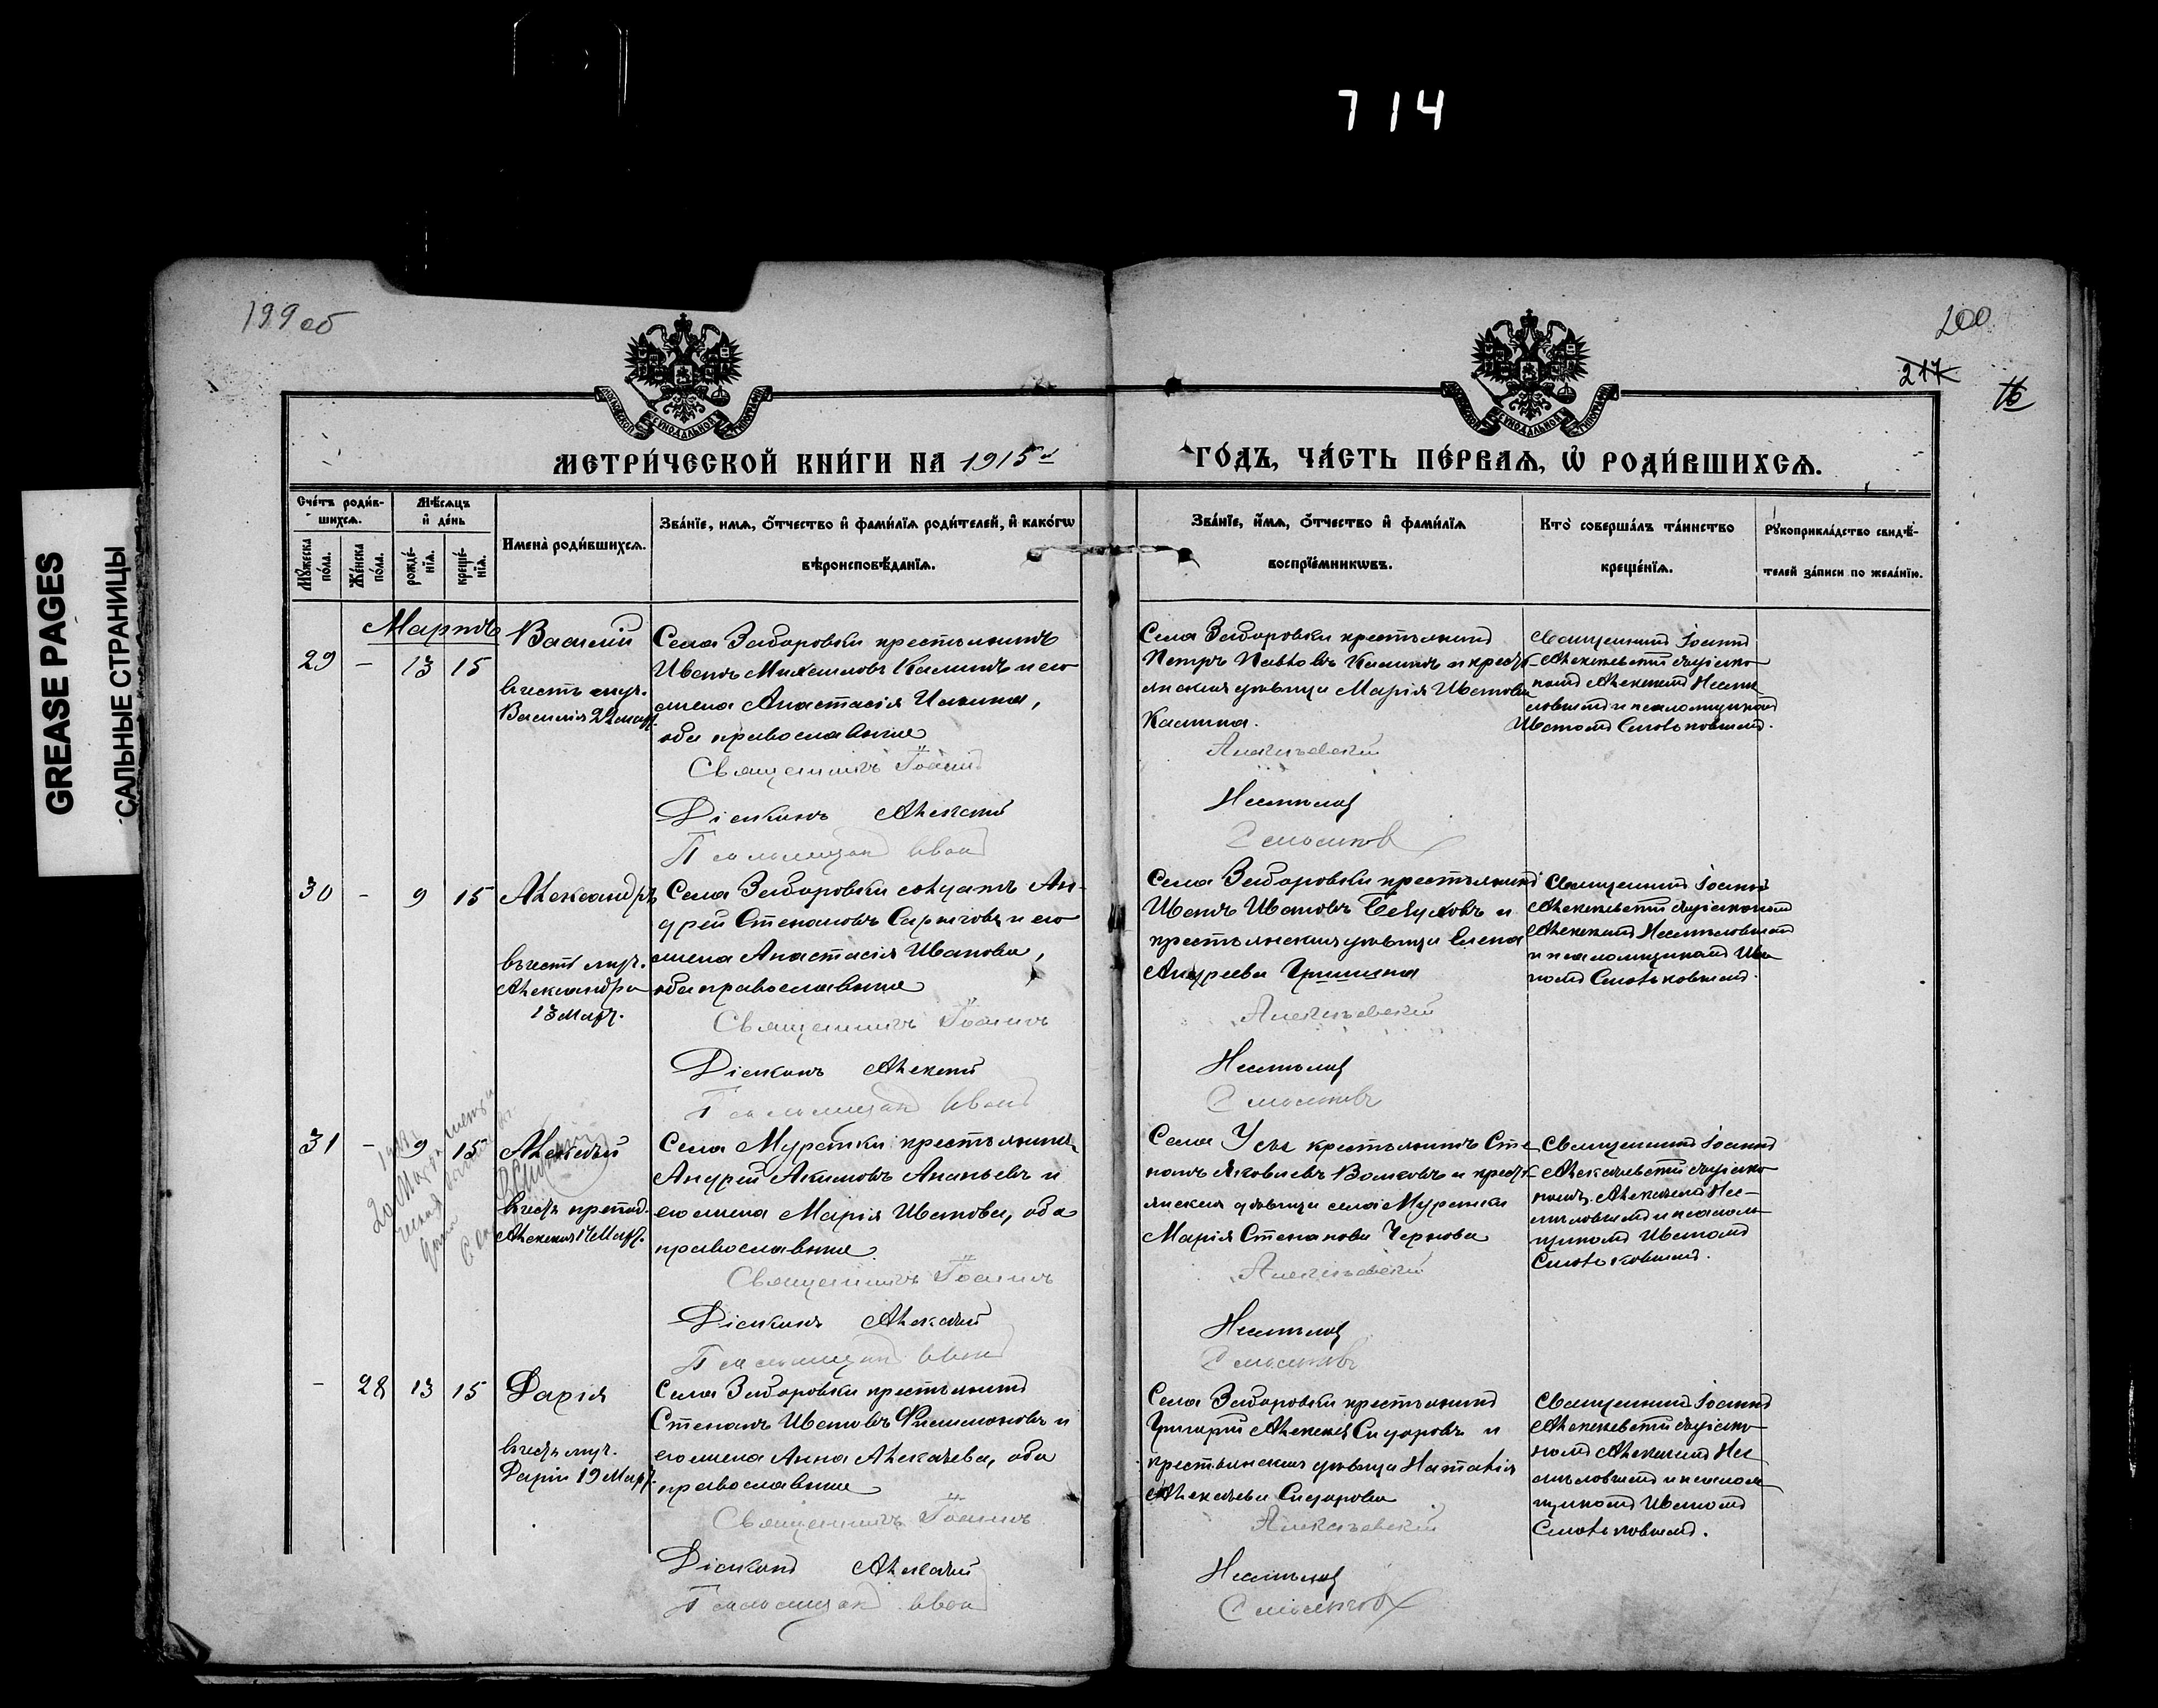 714
GREASE PAGES
САЛЬНЫЕ СТРАНИЦЫ
199 об
200
217
16
МЕТРИ́ЧЕСКОЙ КНИ́ГИ НА 1915 й
ГО́ДЪ, ЧА́СТЬ ПЕ́РВАѦ, Ѡ҆ РОДИ́ВШИХСѦ.
Сче́тъ роди́в-
шихсѧ.
Мѣ́сѧцъ
и҆ де́нь
Мꙋ́жеска
по́ла.
Же́нска
по́ла.
рожде́-
нїѧ.
креще́-
нїѧ.
Имена̀ роди́вшихсѧ.
Зва́нїе, имѧ, ѻ҆́тчество и҆ фами́лїѧ роди́телей, и҆ како́гѡ
вѣроисповѣ́данїѧ.
Зва́нїе, и҆́мѧ, ѻ҆́тчество и҆ фами́лїѧ
воспрїе́мникѡвъ.
Кто̀ соверша́лъ та́инство
креще́нїѧ.
Рꙋкоприкла́дство свидѣ́-
телей за́писи по жела́нїю.
Мартъ
29 - 13 15
Василій
въ честь муч.
Василія 22 мар.
Села Заборовки крестьянинъ
Иванъ Михаиловъ Калинъ и его
жена Анастасія Ильина,
оба православные
Священникъ Іоаннъ
Діаконъ Алексій
Псаломщикъ Иванъ
Села Заборовки крестьянинъ
Петръ Павловъ Калинъ и кресть-
янская дѣвица Марія Иванова
Калина.
Алексѣевскій
Смольковъ
Священникъ Іоаннъ
Алексѣевскій съ діако-
номъ Алексіемъ
и псаломщикомъ
Иваномъ Смольковымъ.
30 - 9 15
Александръ
въ честь муч.
Александра
13 Мар.
Села Заборовки солдатъ Ан-
дрей Степановъ и его
жена Анастасія Иванова,
оба православные
Священникъ Іоаннъ
Діаконъ Алексій
Псаломщикъ Иванъ
Села Заборовки крестьянинъ
Иванъ Ивановъ и
крестьянская дѣвица Елена
Андреева Гришина
Алексѣевскій
Смольковъ
Священникъ Іоаннъ
Алексѣевскій съ діакономъ
Алексіемъ
и псаломщикомъ Ива-
номъ Смольковымъ.
31 - 9 15
Алексѣй
въ честь препод.
Алексія 17 Мар.
Села Муранки крестьянинъ
Андрей Акимовъ Ананьевъ и
его жена Марія Иванова, оба
православные
Священникъ Іоаннъ
Діаконъ Алексѣй
Псаломщикъ Иванъ
Села Усы крестьянинъ Сте-
панъ Яковлевъ Волковъ и кресть-
янская дѣвица села Муранки
Марія Степанова Чернова
Алексѣевскій
Смольковъ
Священникъ Іоаннъ
Алексѣевскій съ діако-
номъ Алексѣемъ
и псалом-
щикомъ Иваномъ
Смольковымъ.
- 28 13 15
Дарія
въ честь муч.
Даріи 19 Мар.
Села Заборовки крестьянинъ
Степанъ Ивановъ Филимоновъ и
его жена Анна Алексѣева, оба
православные
Священникъ Іоаннъ
Діаконъ Алексѣй
Псаломщикъ Иванъ
Села Заборовки крестьянинъ
Григорій Алексѣевъ Сидоровъ и
крестьянская дѣвица Наталія
Алексѣева Сидорова
Алексѣевскій
Смольковъ
Священникъ Іоаннъ
Алексѣевскій съ діако-
номъ Алексіемъ
и псалом-
щикомъ Иваномъ
Смольковымъ.